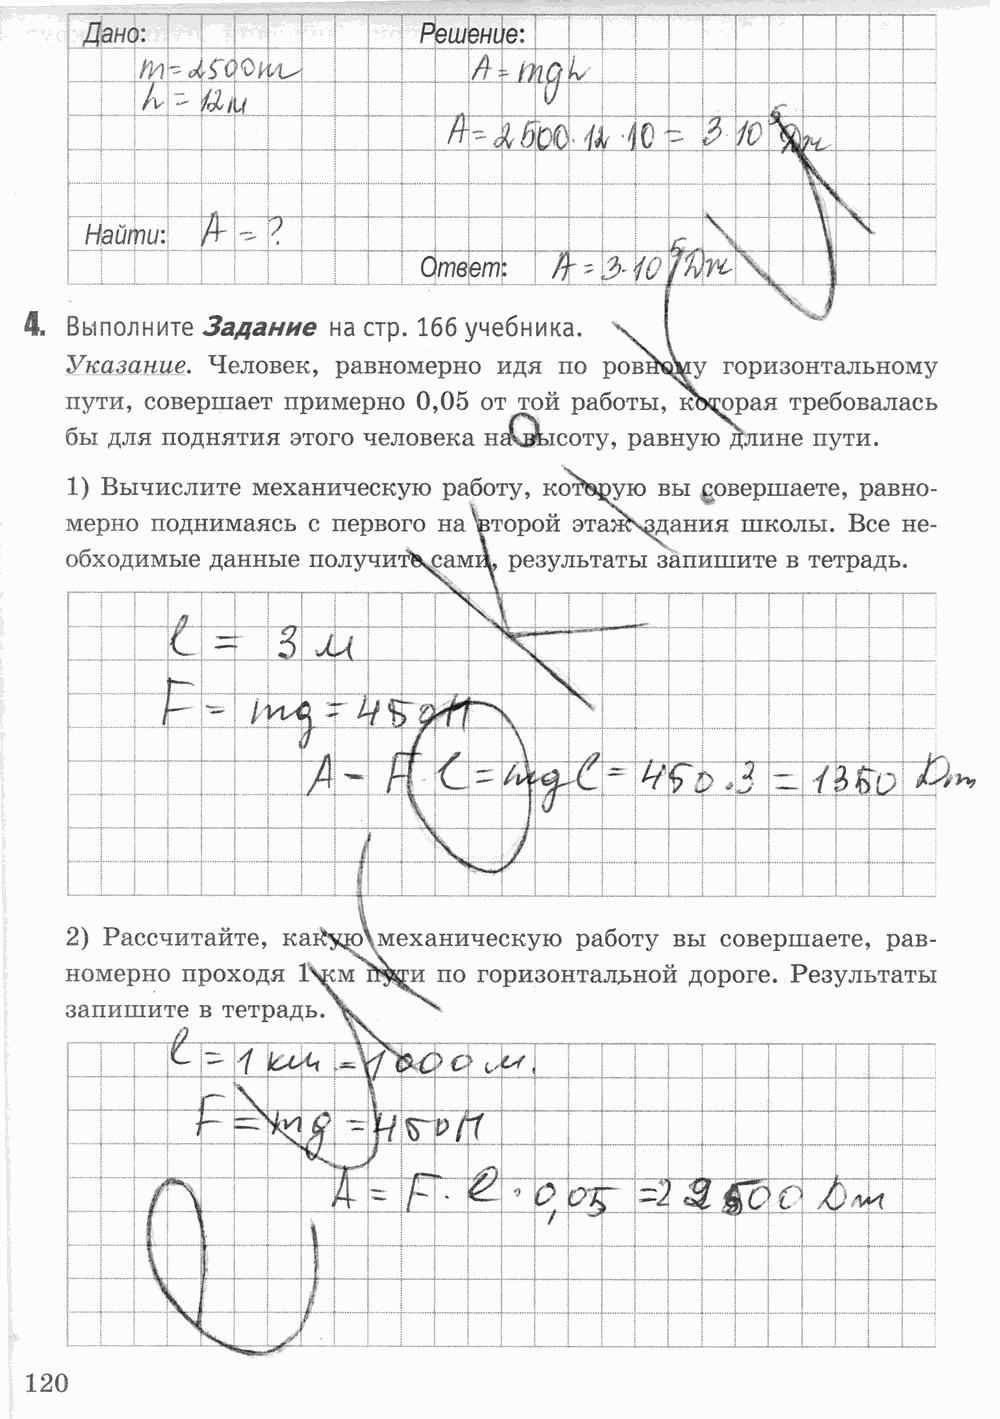 Дано: Решение:
m = 2500 т A = mgh
h = 12 м
A = 2500 · 12 · 10 = 3 · 10⁵ Дж
Найти: A = ?
Ответ: A = 3 · 10⁵ Дж
4. Выполните Задание на стр. 166 учебника.
Указание. Человек, равномерно идя по ровному горизонтальному
пути, совершает примерно 0,05 от той работы, которая требовалась
бы для поднятия этого человека на высоту, равную длине пути.
1) Вычислите механическую работу, которую вы совершаете, равно-
мерно поднимаясь с первого на второй этаж здания школы. Все не-
обходимые данные получите сами, результаты запишите в тетрадь.
l = 3 м
F = mg = 450 Н
A – F l = mgl = 450 · 3 = 1350 Дж
2) Рассчитайте, какую механическую работу вы совершаете, рав-
номерно проходя 1 км пути по горизонтальной дороге. Результаты
запишите в тетрадь.
l = 1 км = 1000 м.
F = mg = 450 Н
A = F · l · 0,05 = 22500 Дж
120